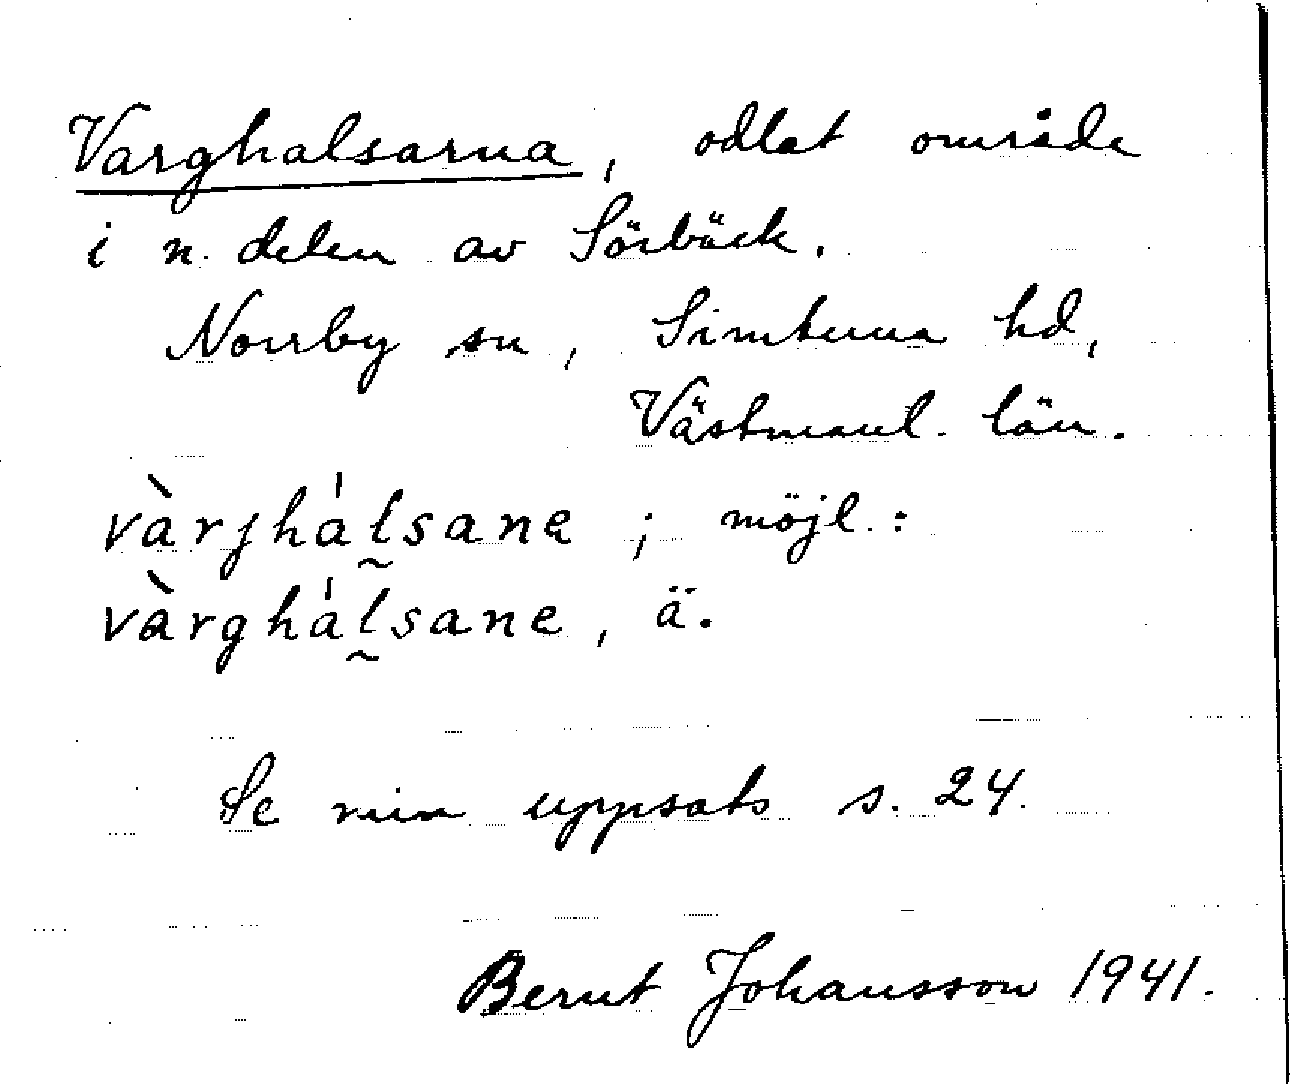 Varghalsarna, odlat område
i n. delen av Sörbäck.
Norrby sn, Simtuna hd,
Västmanl. län.
vàrjhálsane; möjl.:
vàrghálsane, ä.
Se min uppsats s. 24.
Bernt Johansson 1941.